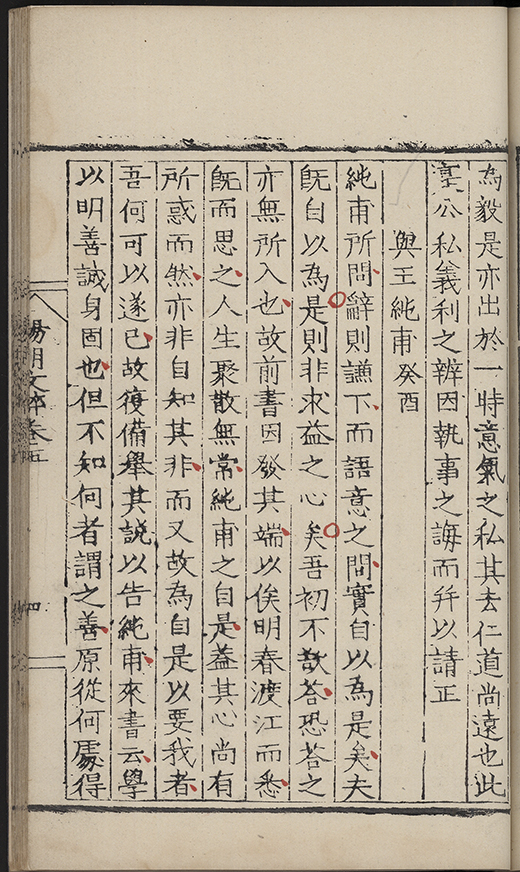 為毅是亦出於一時意氣之私其去仁道尚遠也此
公私義利之辨因執事之誨而并以請正
與王純甫癸酉
純甫所問辭則謙下而語意之間實自以為是矣夫
既自以為是則非求益之心矣吾初不欲荅恐荅之
亦無所入也故前書因發其端以俟明春渡江而悉
既而思之人生聚散無常純甫之自是蓋其心尚有
所惑而然亦非自知其非而又故為自是以要我者
吾何可以遂已故復備舉其說以告純甫來書云學
以明善誠身固也但不知何者謂之善原從何處得
陽明文粹卷五
四